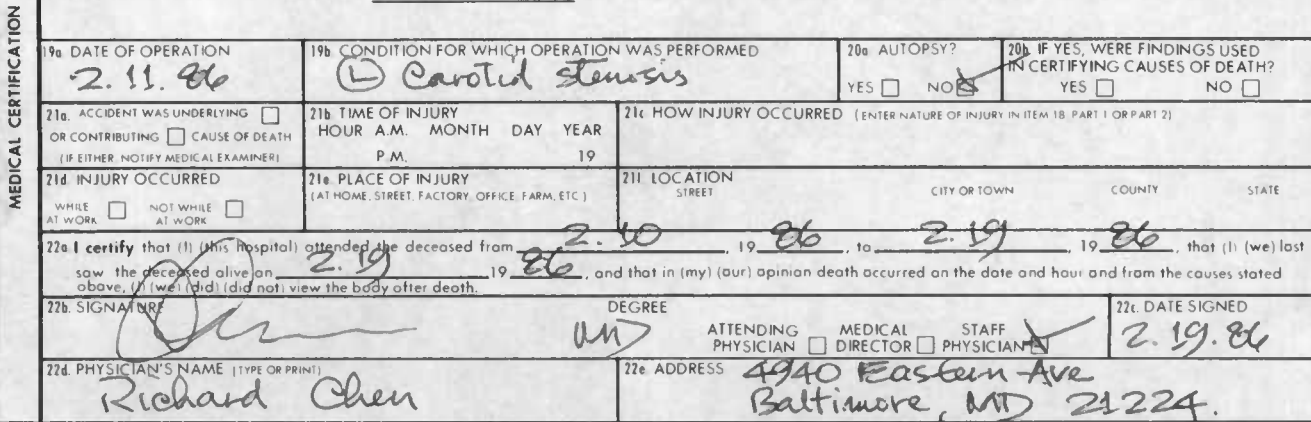 MEDICAL CERTIFICATION
19a DATE OF OPERATION
2.11.86
19b CONDITION FOR WHICH OPERATION WAS PERFORMED
Ⓛ Carotid stenosis
20a AUTOPSY?
YES NO
20b IF YES, WERE FINDINGS USED
IN CERTIFYING CAUSES OF DEATH?
YES NO
21a. ACCIDENT WAS UNDERLYING
OR CONTRIBUTING CAUSE OF DEATH
(IF EITHER NOTIFY MEDICAL EXAMINER)
21b TIME OF INJURY
HOUR A.M. MONTH DAY YEAR
P.M. 19
21c HOW INJURY OCCURRED (ENTER NATURE OF INJURY IN ITEM 18 PART 1 OR PART 2)
21d INJURY OCCURRED
WHILE AT WORK NOT WHILE AT WORK
21e PLACE OF INJURY
(AT HOME, STREET, FACTORY, OFFICE, FARM, ETC)
21f LOCATION
STREET CITY OR TOWN COUNTY STATE
22a I certify that (I) (this hospital) attended the deceased from 2.10 19 86, to 2.19, 19 86, that (I) (we) last
saw the deceased alive on 2.19 19 86, and that in (my) (our) opinion death occurred on the date and hour and from the causes stated
above, (I) (we) (did) (did not) view the body after death.
22b. SIGNATURE
DEGREE
MD
ATTENDING PHYSICIAN MEDICAL DIRECTOR STAFF PHYSICIAN
22c. DATE SIGNED
2.19.86
22d. PHYSICIAN'S NAME (TYPE OR PRINT)
Richard Chen
22e ADDRESS 4940 Eastern Ave
Baltimore, MD 21224.